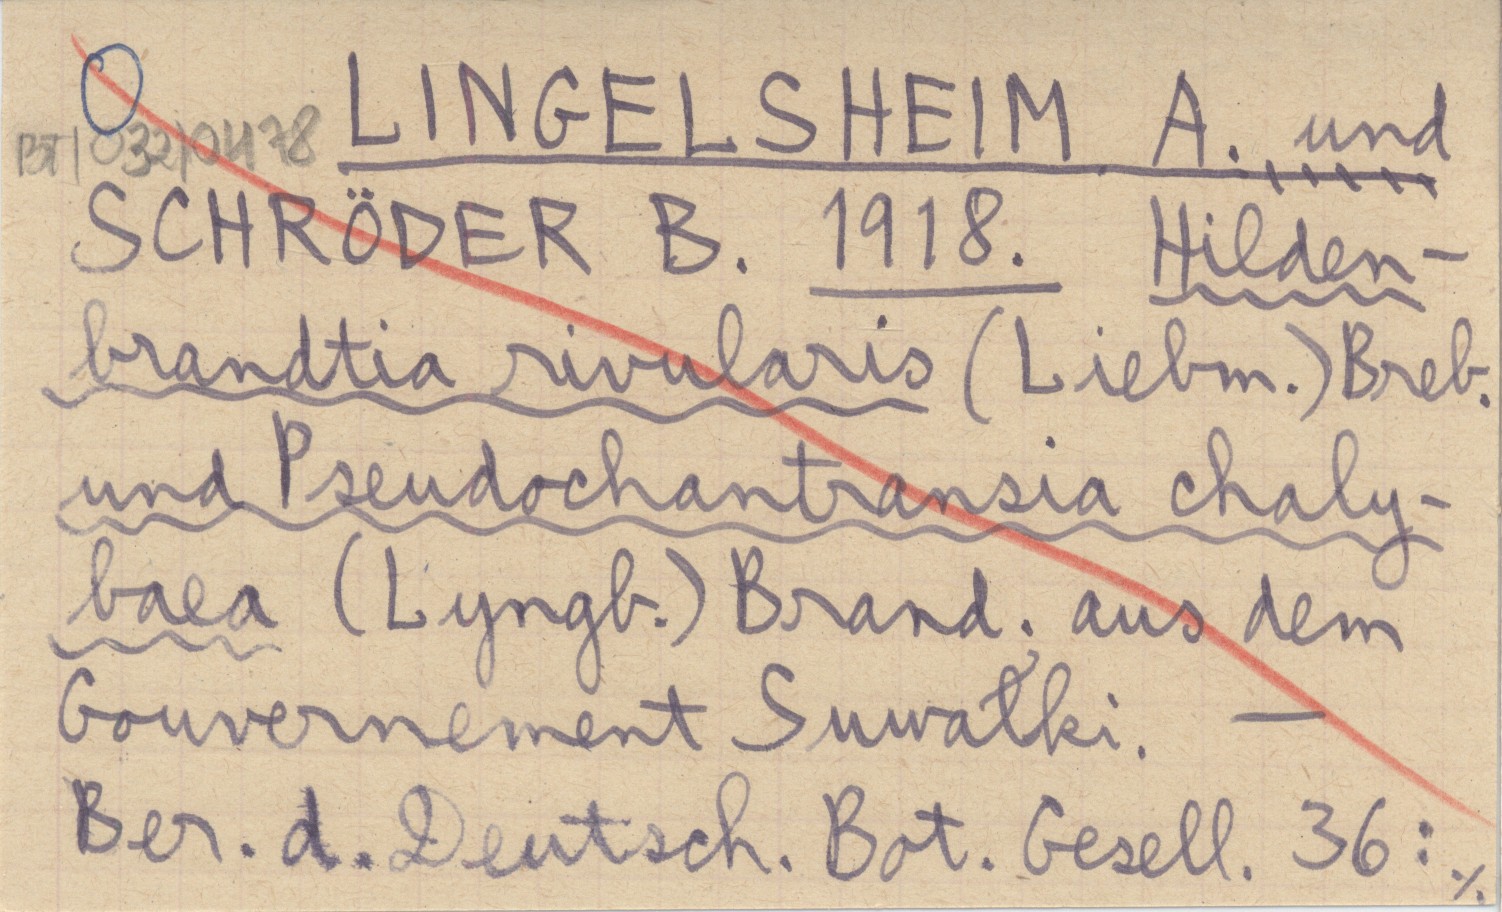 BT|032|0478 LINGELSHEIM A. und
SCHRÖDER B. 1918. Hilden-
brandtia rivularis (Liebm.) Breb.
und Pseudochantransia chaly-
baea (Lyngb.) Brand. aus dem
Gouvernement Suwałki. —
Ber. d. Deutsch. Bot. Gesell. 36:
./.